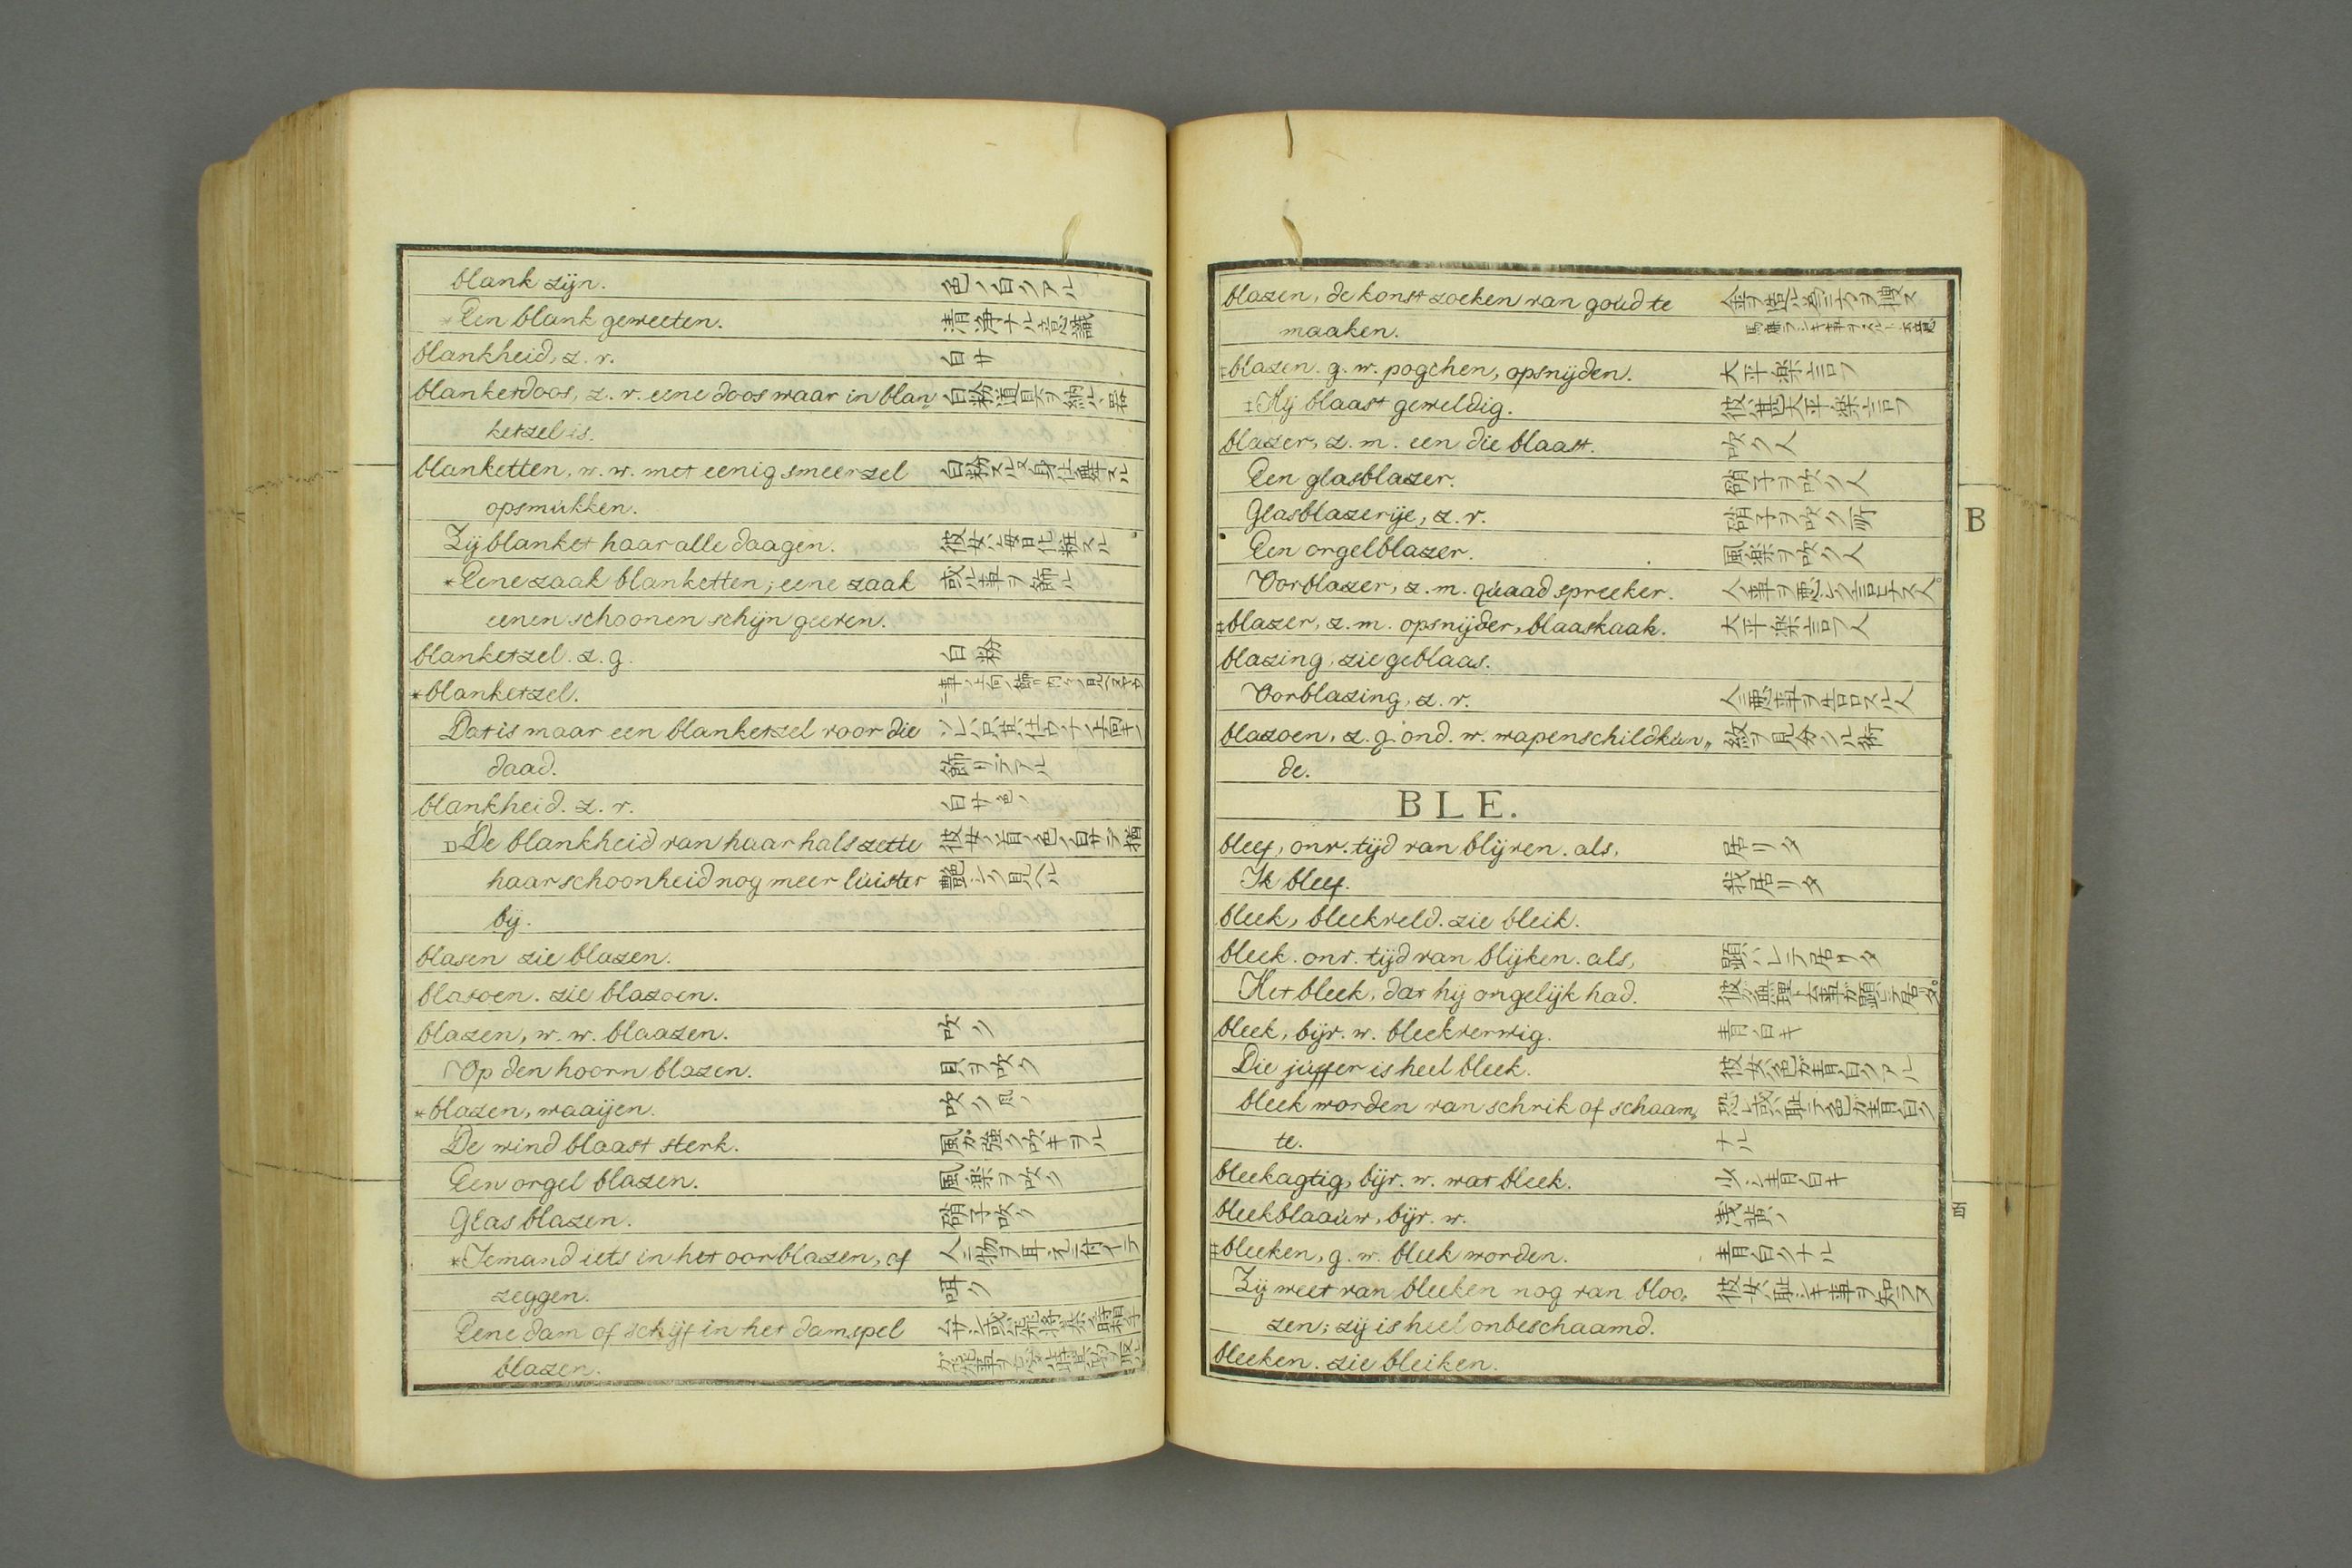 blank zijn. 色ノ白クアル
Een blank geweeten. 清浄ナル意識
blankheid, z. v. 白サ
blanketdoos, z. v. eene doos waar in blan„ 白粉道具ヲ納ルヽ器
ketzel is.
blanketten, w. w. met eenig smeerzel 白粉スル又身仕舞スル
opsmukken.
Zij blanket haar alle daagen. 彼女ハ毎日化粧スル
*Eene zaak blanketten; eene zaak 或ル事ヲ飾ル
eenen schoonen schijn geeven.
blanketzel. z. g. 白粉
*blanketzel.
Dat is maar een blanketzel voor die
daad. 飾リデアル
blankheid. z. v. 白サ色ノ
De blankheid van haar hals zette 彼女ノ首ノ色ノ白サデ猶
haar schoonheid nog meer luister 艶シク見ヘル
bij.
blasen zie blazen.
blasoen. zie blazoen.
blazen, w. w. blaazen. 吹ク
Op den hoorn blazen. 貝ヲ吹ク
*blazen, waaijen. 吹ク風ノ
De wind blaast sterk. 風ガ強ク吹キヲル
Een orgel blazen. 風楽ヲ吹ク
Glas blazen. 硝子吹ク
*Iemand iets in het oor blazen, of 人ニ物ヲ耳ノ元ニ付イテ
zeggen. 咡ク
Eene dam of schijf in het damspel
blazen.
blazen, de konst zoeken van goud te 金ヲ造ル為ニ方ヲ捜ス
maaken.
‡blazen. g. w. pogchen, opsnijden. 大平楽言フ
‡Hij blaast geweldig. 彼ハ甚大平楽言フ
blazer, z. m. een die blaast. 吹ク人
Een glasblazer. 硝子ヲ吹ク人
Glasblazerije, z. v. 硝子ヲ吹ク所
Een orgelblazer. 風楽ヲ吹ク人
Oorblazer, z. m. quaad spreeker. 人ノ事ヲ悪シク言ヒナス人
‡blazer, z. m. opsnijder, blaaskaak. 大平楽言フ人
blazing, zie geblaas.
Oorblazing, z. v. 人ニ悪事ヲ告口スル人
blazoen, z. g. ond. w. wapenschildkun„ 紋ヲ見分クル術
de.
BLE.
bleef, onv. tijd van blijven. als, 居リタ
Ik bleef. 我居リタ
bleek, bleekveld. zie bleik.
bleek. onv. tijd van blijken. als, 顕ハレテ居リタ
Het bleek, dat hij ongelijk had.
bleek, bijv. w. bleekverwig. 青白キ
Die juffer is heel bleek. 彼女ハ色ガ青白クアル
bleek worden van schrik of schaam„ 恐レ或ハ耻テ色ガ青白ク
te. ナル
bleekagtig, bijv. w. wat bleek. 少シ青白キ
bleekblaauw, bijv. w. 浅黄ノ
‡bleeken, g. w. bleek worden. 青白クナル
Zij weet van bleeken nog van bloo„ 彼女ハ耻シキ事ヲ知ラヌ
zen; zij is heel onbeschaamd.
bleeken. zie bleiken.
B
四